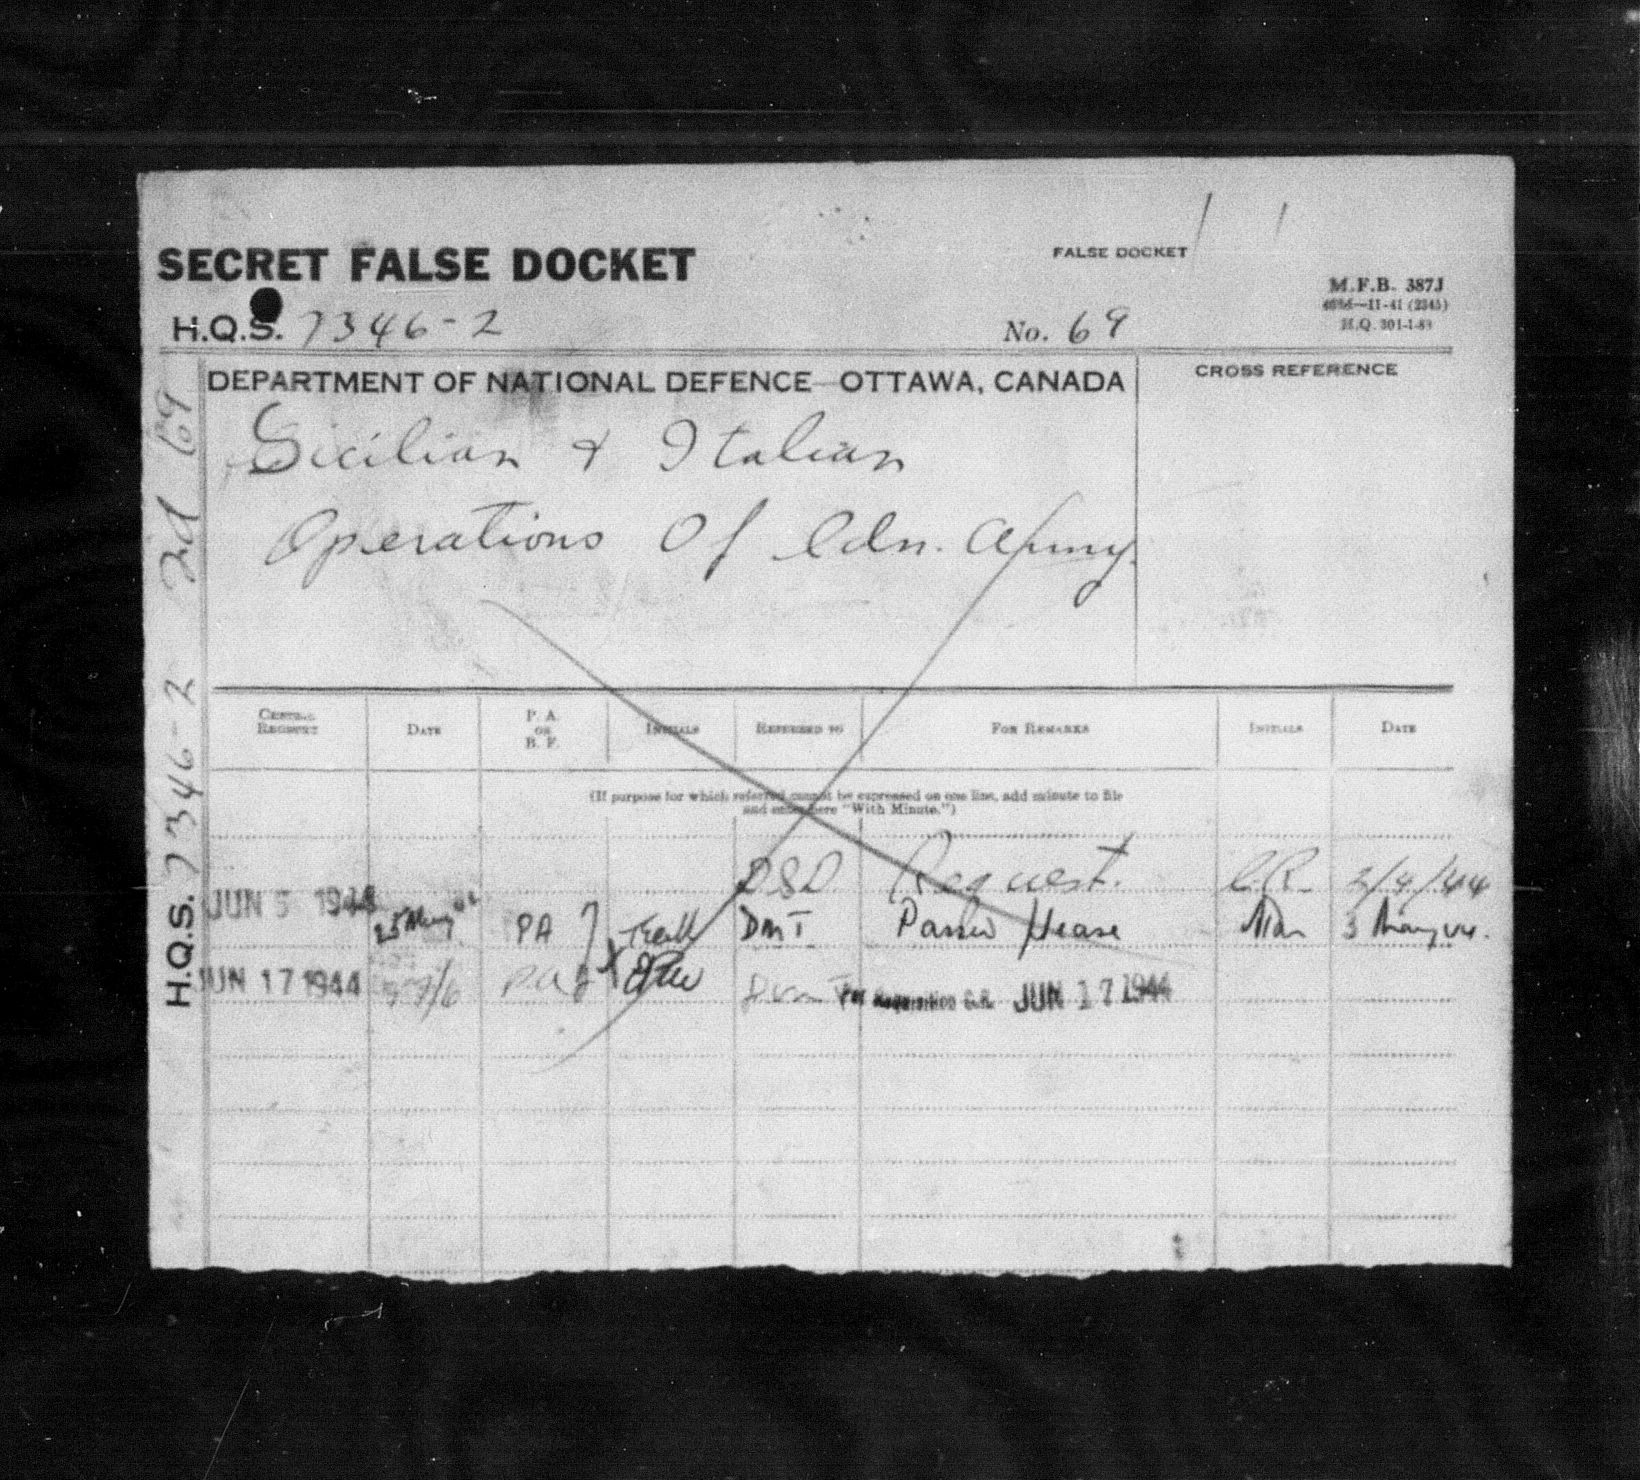 SECRET FALSE DOCKET
FALSE DOCKET
M.F.B. 387J
H.Q.S. 7346-2
No. 69
H.Q. 301-1-83
DEPARTMENT OF NATIONAL DEFENCE—OTTAWA, CANADA
CROSS REFERENCE
Sicilian & Italian
Operations Of Cdn. Army.
H.Q.S. 7346-2 2nd 69
CENTRAL REGISTRY
DATE
P. A. OR B. F.
INITIALS
REFERRED TO
FOR REMARKS
INITIALS
DATE
(If purpose for which referred cannot be expressed on one line, add minute to file
and enter here "With Minute.")
DSD Request. C.R. 3/4/44
JUN 5 1944 PA DMT Passed Please 3 May 44.
JUN 17 1944 P.A. For Requisition C.R. JUN 17 1944